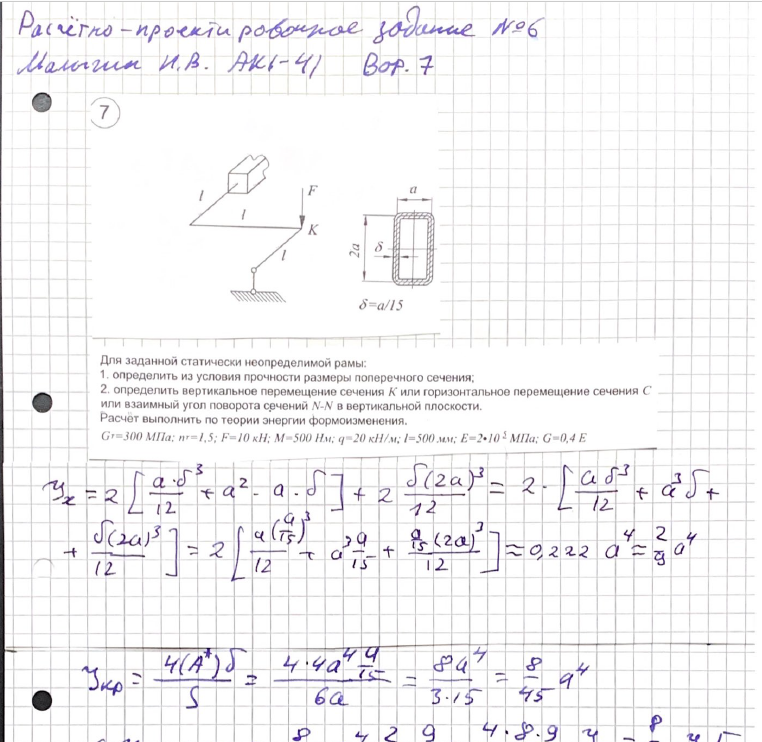 Расчётно-проектировочное задание №6
Малыгин И.В. АК1-41 Вар. 7
7
l
l
F
K
l
a
2a
δ
δ=a/15
Для заданной статически неопределимой рамы:
1. определить из условия прочности размеры поперечного сечения;
2. определить вертикальное перемещение сечения K или горизонтальное перемещение сечения C
или взаимный угол поворота сечений N-N в вертикальной плоскости.
Расчёт выполнить по теории энергии формоизменения.
σт=300 МПа; nт=1,5; F=10 кН; M=500 Нм; q=20 кН/м; l=500 мм; E=2•10⁵ МПа; G=0,4 E
Jx = 2 [ a·δ³/12 + a²·a·δ ] + 2 δ(2a)³/12 = 2·[ aδ³/12 + a³δ +
+ δ(2a)³/12 ] = 2 [ a(a/15)³/12 + a³ a/15 + a/15 (2a)³/12 ] ≈ 0,222 a⁴ ≈ 2/9 a⁴
Jкр = 4(A*)δ/S = 4·4a⁴ a/15 / 6a = 8a⁴/3·15 = 8/45 a⁴